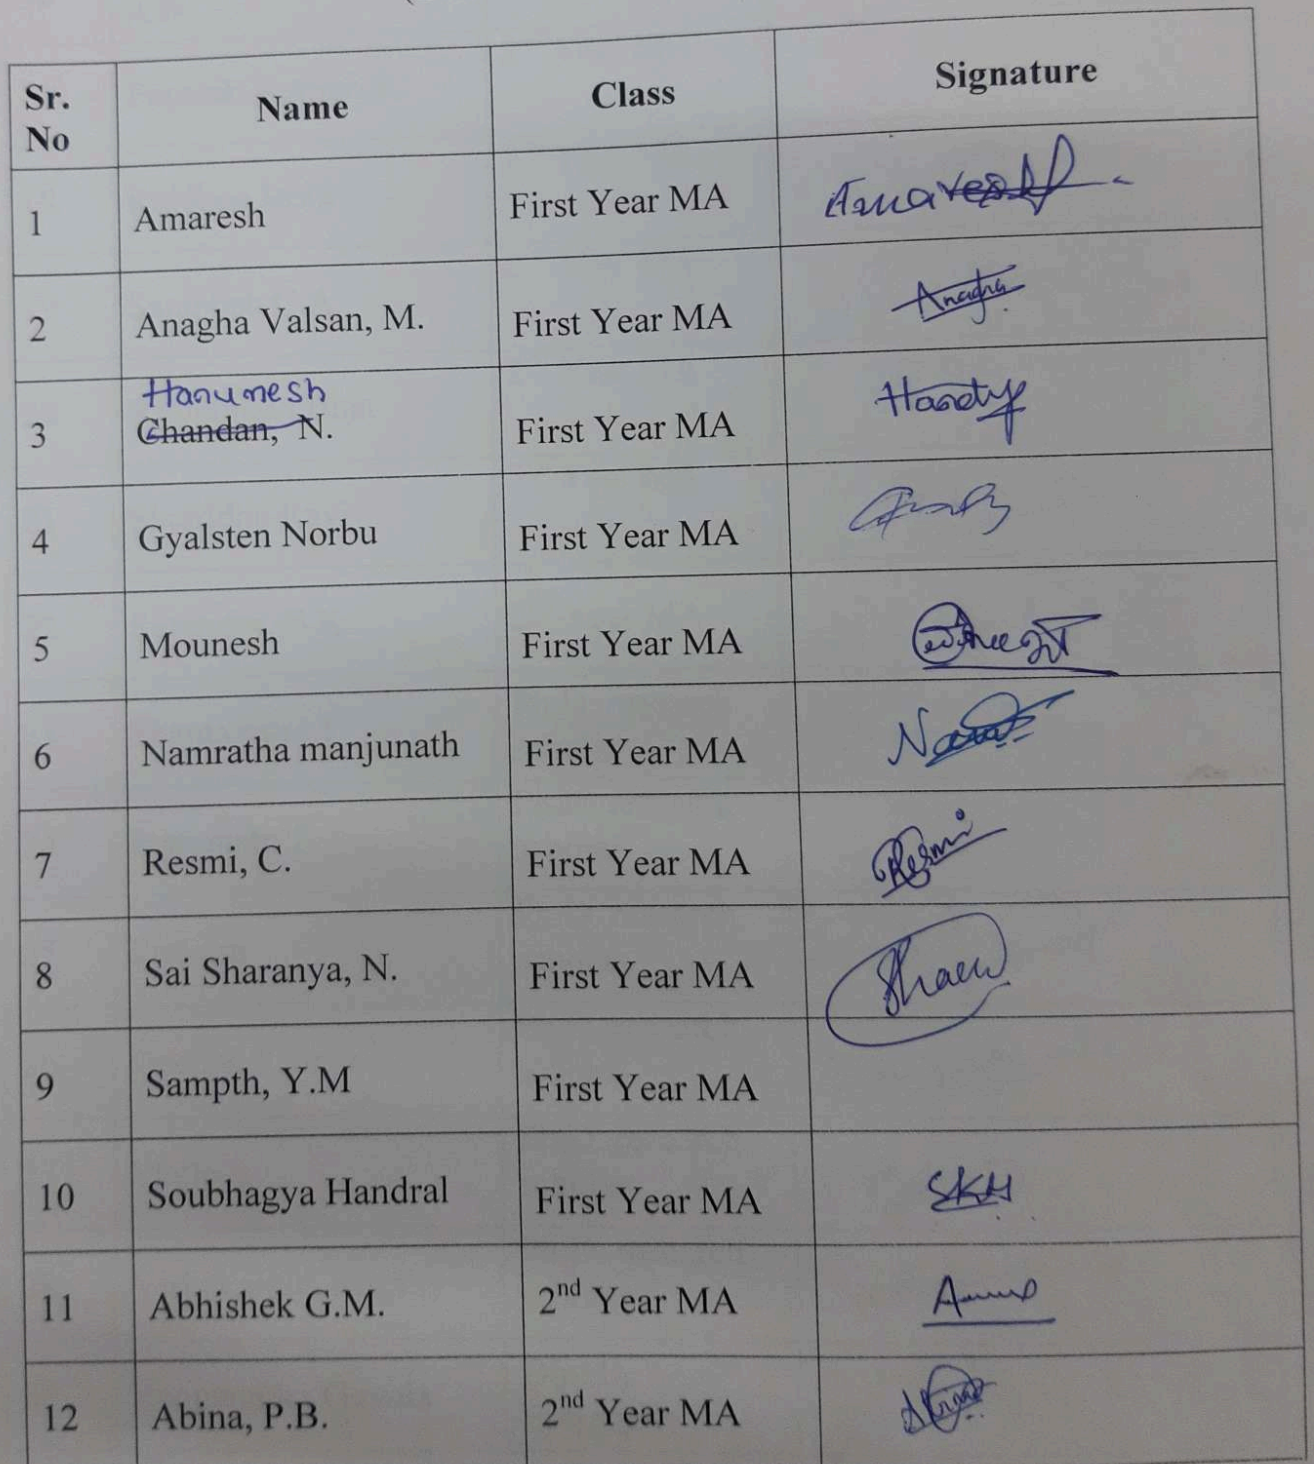 Sr. No Name Class Signature
1 Amaresh First Year MA Amaresh
2 Anagha Valsan, M. First Year MA Anagha
Hanumesh
3 Chandan, N. First Year MA
4 Gyalsten Norbu First Year MA
5 Mounesh First Year MA
6 Namratha manjunath First Year MA
7 Resmi, C. First Year MA Resmi
8 Sai Sharanya, N. First Year MA
9 Sampth, Y.M First Year MA
10 Soubhagya Handral First Year MA SKH
11 Abhishek G.M. 2nd Year MA
12 Abina, P.B. 2nd Year MA